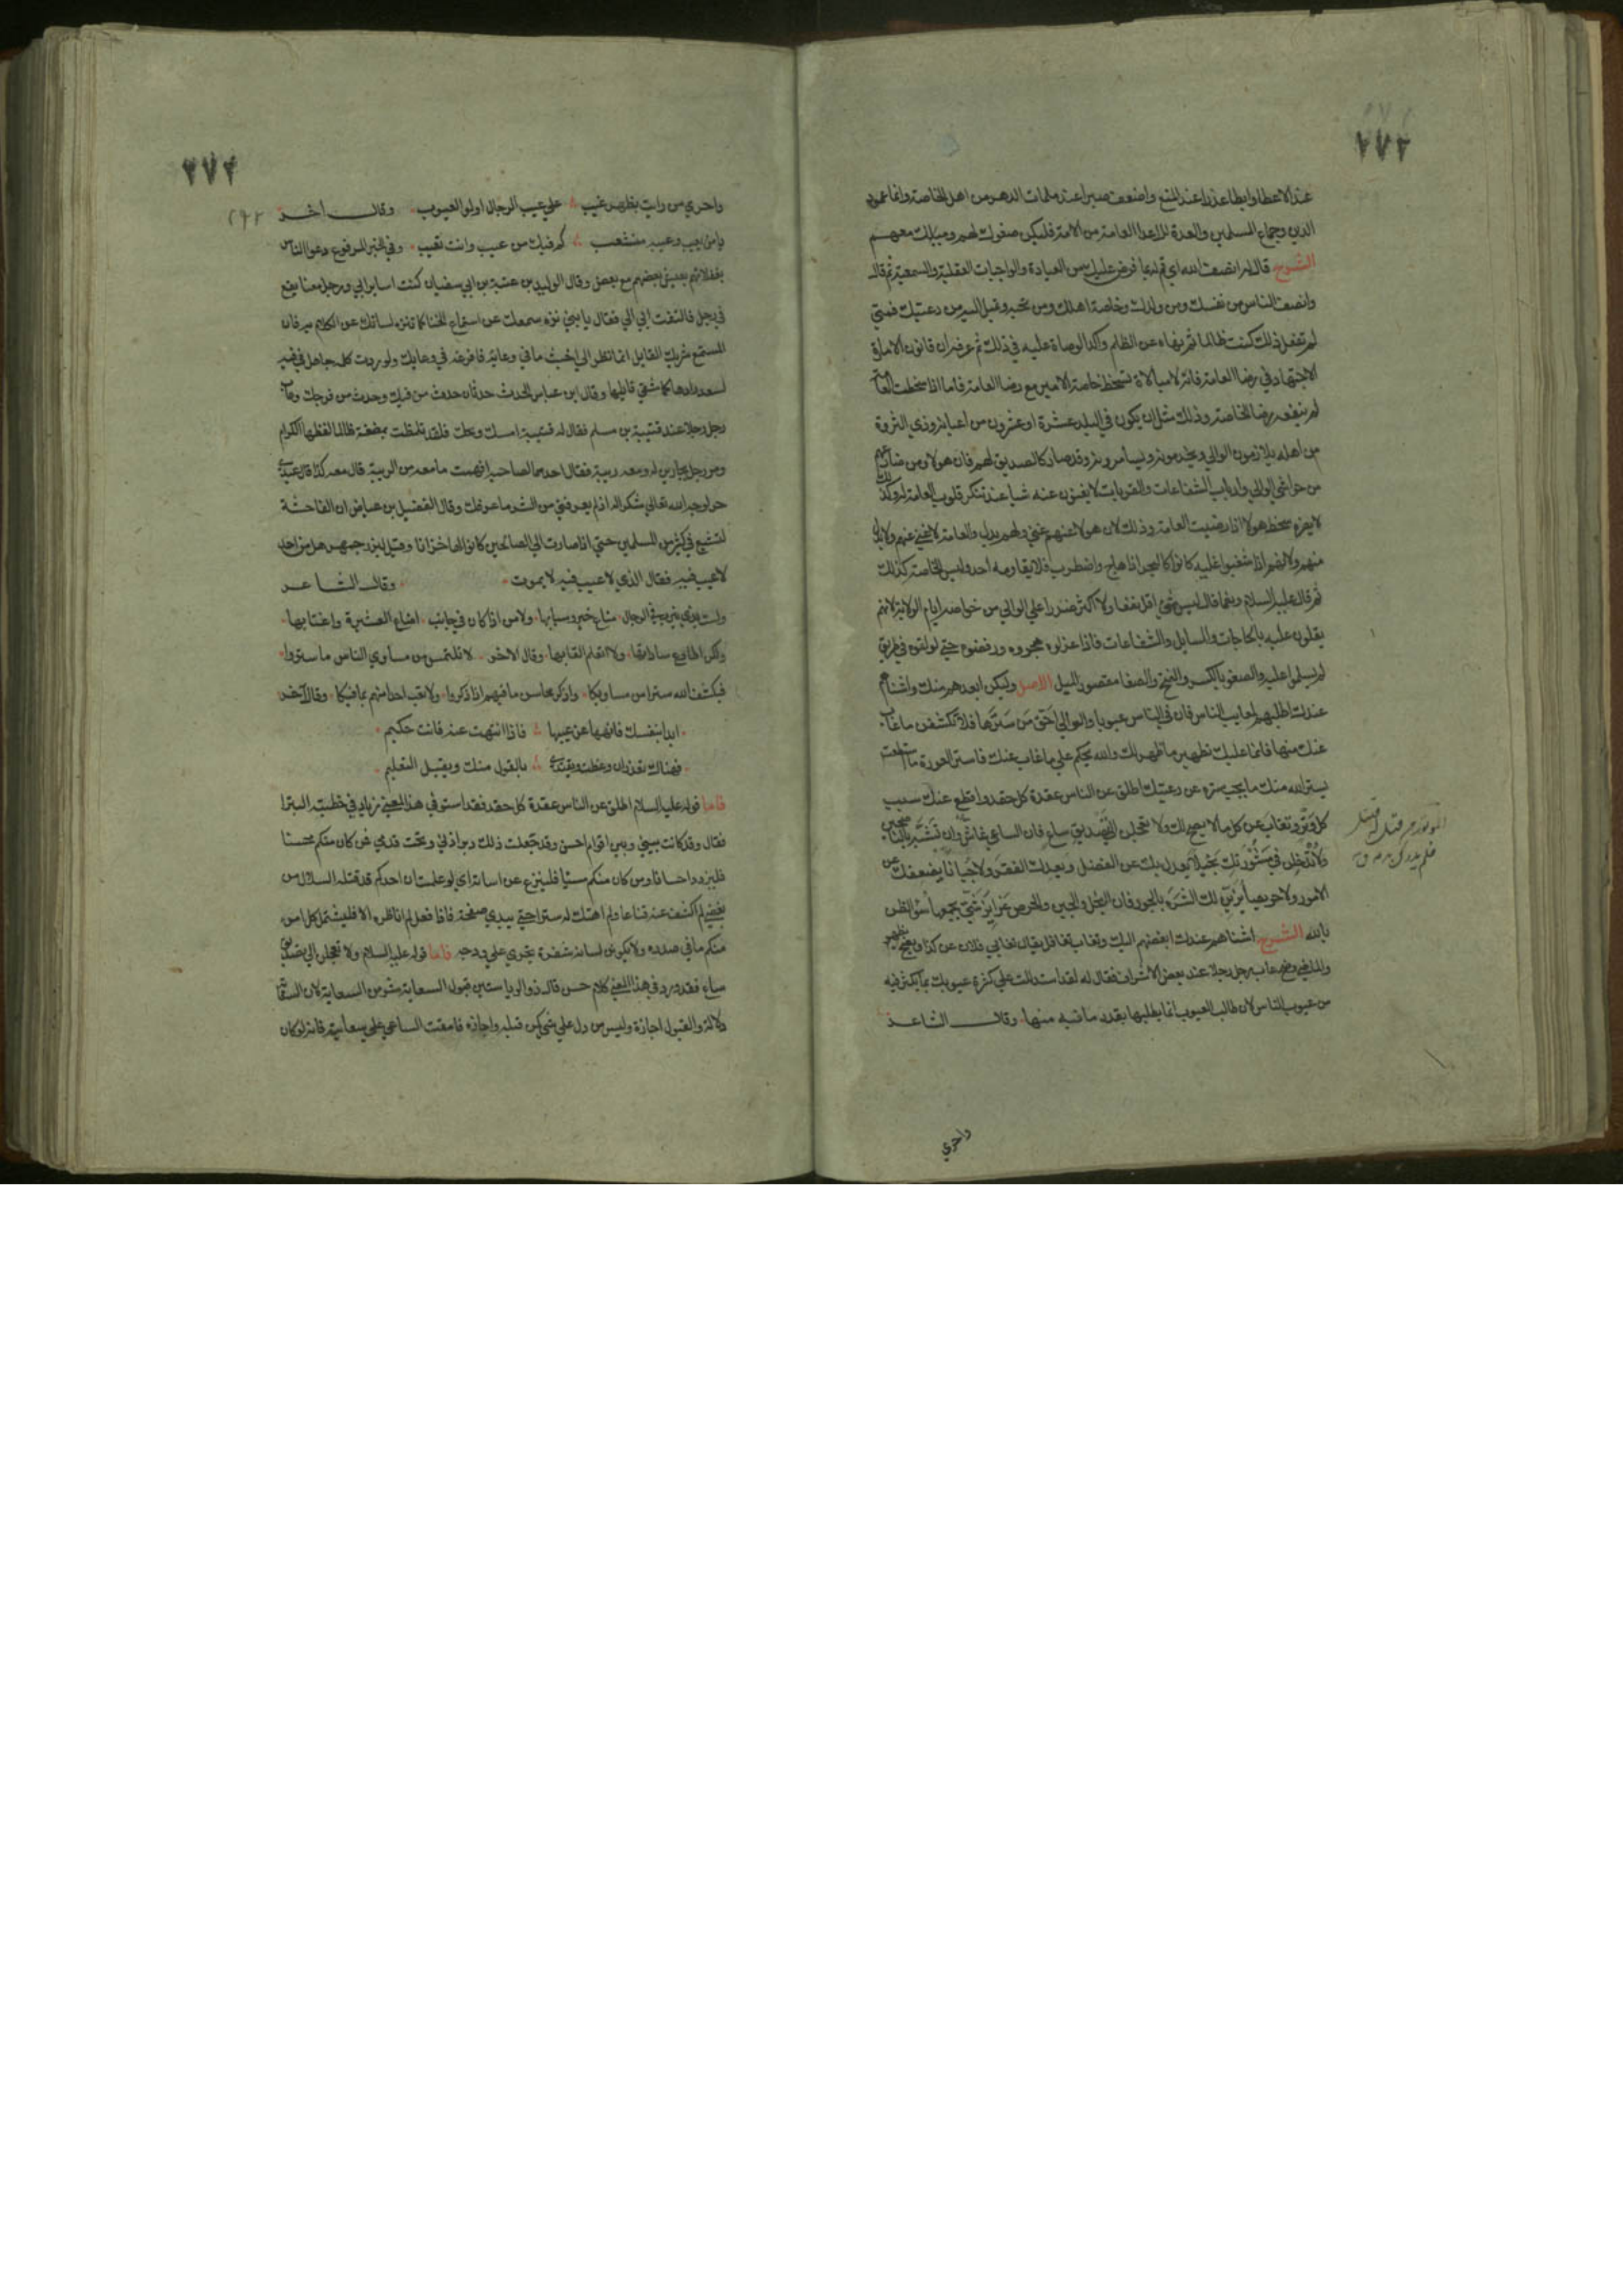 ٢٧٣
عند الاعطا وابطا عذرا عند المنع واضعف صبرا عند ملمات الدهر من اهل الخاصة وانما عمود
الدين وجماع المسلمين والعدة للاعدا العامة من الامة فليكن صغوك لهم وميلك معهم
الشرح قال له انصف الله اي قم له بما فرض عليك من العبادة والواجبات العقلية والسمعية ثم قال
وانصف الناس من نفسك ومن ولدك وخاصة اهلك ومن تحبه وتميل اليه من رعيتك فمتى
لم تفعل ذلك كنت ظالما ثم نهاه عن الظلم واكد الوصاة عليه في ذلك ثم عرفه ان قانون الامارة
الاجتهاد في رضا العامة فانه لا مبالاة بسخط خاصة الامير مع رضا العامة فاما اذا سخطت العامة
لم ينفعه رضا الخاصة وذلك مثل ان يكون في البلد عشرة او عشرون من اغنيائه وذوي الثروة
من اهله يلازمون الوالي ويخدمونه ويسامرونه وقد صار كالصديق لهم فان هولا ومن ضارعهم
من حواشي الوالي وارباب الشفاعات والقربات لا يغنون عنه شيا عند تنكر قلوب العامة له وكذلك
لا يضره سخط هولا اذا رضيت العامة وذلك لان هولا عنهم غنى ولهم بدل والعامة لا غنى عنهم ولا بدل
منهم ولانهم اذا شغبوا عليه كانوا كالبحر اذا هاج واضطرب فلا يقاومه احد وليس الخاصة كذلك
ثم قال عليه السلام ونعما قال ليس شي اقل نفعا ولا اكثر ضررا على الوالي من خواصه ايام الولاية لانهم
يثقلون عليه بالحاجات والمسايل والشفاعات فاذا عزل هجروه ورفضوه حتى لو لقوه في الطريق
لم يسلموا عليه والصغو بالكسر والفتح والصغا مقصور الميل الاصل وليكن ابعدهم منك واشناهم
عندك اطلبهم لمعايب الناس فان في الناس عيوبا والوالي احق من سترها فلا تكشفن ما غاب
عنك منها فانما عليك تطهير ما ظهر لك والله يحكم على ما غاب عنك فاستر العورة ما استطعت
يستر الله منك ما تحب ستره عن رعيتك اطلق عن الناس عقدة كل حقد واقطع عنك سبب
كل وتر وتغاب عن كل ما لا يصح لك ولا تعجلن الى تصديق ساع فان الساعي غاش وان تشبه بالناصحين
ولا تدخلن في مشورتك بخيلا يعدل بك عن الفضل ويعدك الفقر ولا جبانا يضعفك عن
الامور ولا حريصا يزين لك الشره بالجور فان البخل والجبن والحرص غرايز شتى يجمعها سؤ الظن
بالله الشرح اشناهم عندك ابغضهم اليك وتغاب تغافل يقال تغابى فلان عن كذا ويضح يظهر
والماضي وضح عاب رجل رجلا عند بعض الاشراف فقال له لقد استدللت على كثرة عيوبك بما تكثر فيه
من عيوب الناس لان طالب العيوب انما يطلبها بقدر ما فيه منها وقال الشاعر
الموتور من قتل له قتيل
فلم يدرك بدمه
واجري
٢٧٤
واجري من رايت بظهر غيب على عيب الرجال اولوا العيوب وقال اخر
يا من يعيب وعيبه منشعب كم فيك من عيب وانت تعيب وفي الخبر المرفوع دعوا الناس
بغفلاتهم يعيش بعضهم مع بعض وقال الوليد بن عتبة بن ابي سفيان كنت اساير ابي ورجل معنا يقع
في رجل فالتفت ابي الي فقال يا بني نزه سمعك عن استماع الخنا كما تنزه لسانك عن الكلام به فان
المستمع شريك القايل انما نظر الى اخبث ما في وعائه فافرغه في وعايك ولو ردت كلمة جاهل في فيه
لسعد رادها كما شقي قايلها وقال ابن عباس الحدث حدثان حدث من فيك وحدث من فرجك وعاب
رجل رجلا عند قتيبة بن مسلم فقال له قتيبة امسك ويحك فلقد تلمظت بمضغة طالما لفظها الكرام
ومر رجل بجارين له ومعه ريبة فقال احدهما لصاحبه افهمت ما معه من الريبة قال معه كذا قال عبدي
حر لوجه الله تعالى شكرا له اذ لم يعرفني من الشر ما عرفك وقال الفضيل بن عياض ان الفاحشة
لتشيع في كثير من المسلمين حتى اذا صارت الى الصالحين كانوا لها خزانا وقيل لبزرجمهر هل من احد
لا عيب فيه فقال الذي لا عيب فيه لا يموت وقال الشاعر
ولست بذي نيرب في الرجال مناع خير وسبابها ولا من اذا كان في جانب اضاع العشيرة واغتابها
ولكن اطاوع ساداتها ولا اتعلم القابها وقال الاخر لا تلتمس من مساوي الناس ما ستروا
فيكشف الله سترا من مساويكا واذكر محاسن ما فيهم اذا ذكروا ولا تعب احدا منهم بما فيكا وقال آخر
ابدا بنفسك فانهها عن عيبها فاذا انتهت عنه فانت حكيم
فهناك تعذر ان وعظت ويقتدى بالقول منك ويقبل التعليم
فاما قوله عليه السلام اطلق عن الناس عقدة كل حقد فقد استوفى هذا المعنى زياد في خطبته البترا
فقال وقد كانت بيني وبين اقوام احن وقد جعلت ذلك دبر اذني وتحت قدمي فمن كان منكم محسنا
فليزدد احسانا ومن كان منكم مسيا فلينزع عن اساءته اني لو علمت ان احدكم قد قتله السلال من
بغضي لم اكشف عنه قناعا ولم اهتك له سترا حتى يبدي صفحته فاذا فعل لم اناظره الا فليشتمل كل امرء
منكم على ما في صدره ولا يكونن لسانه شفرة تجري على ودجه فاما قوله عليه السلام ولا تعجلن الى تصديق
ساع فقد ورد في هذا المعنى كلام حسن قال ذو الرياستين قبول السعاية شر من السعاية لان السعاية
دلالة والقبول اجازة وليس من دل على شي كمن قبله واجازه فامقت الساعي على سعايته فانه لو كان